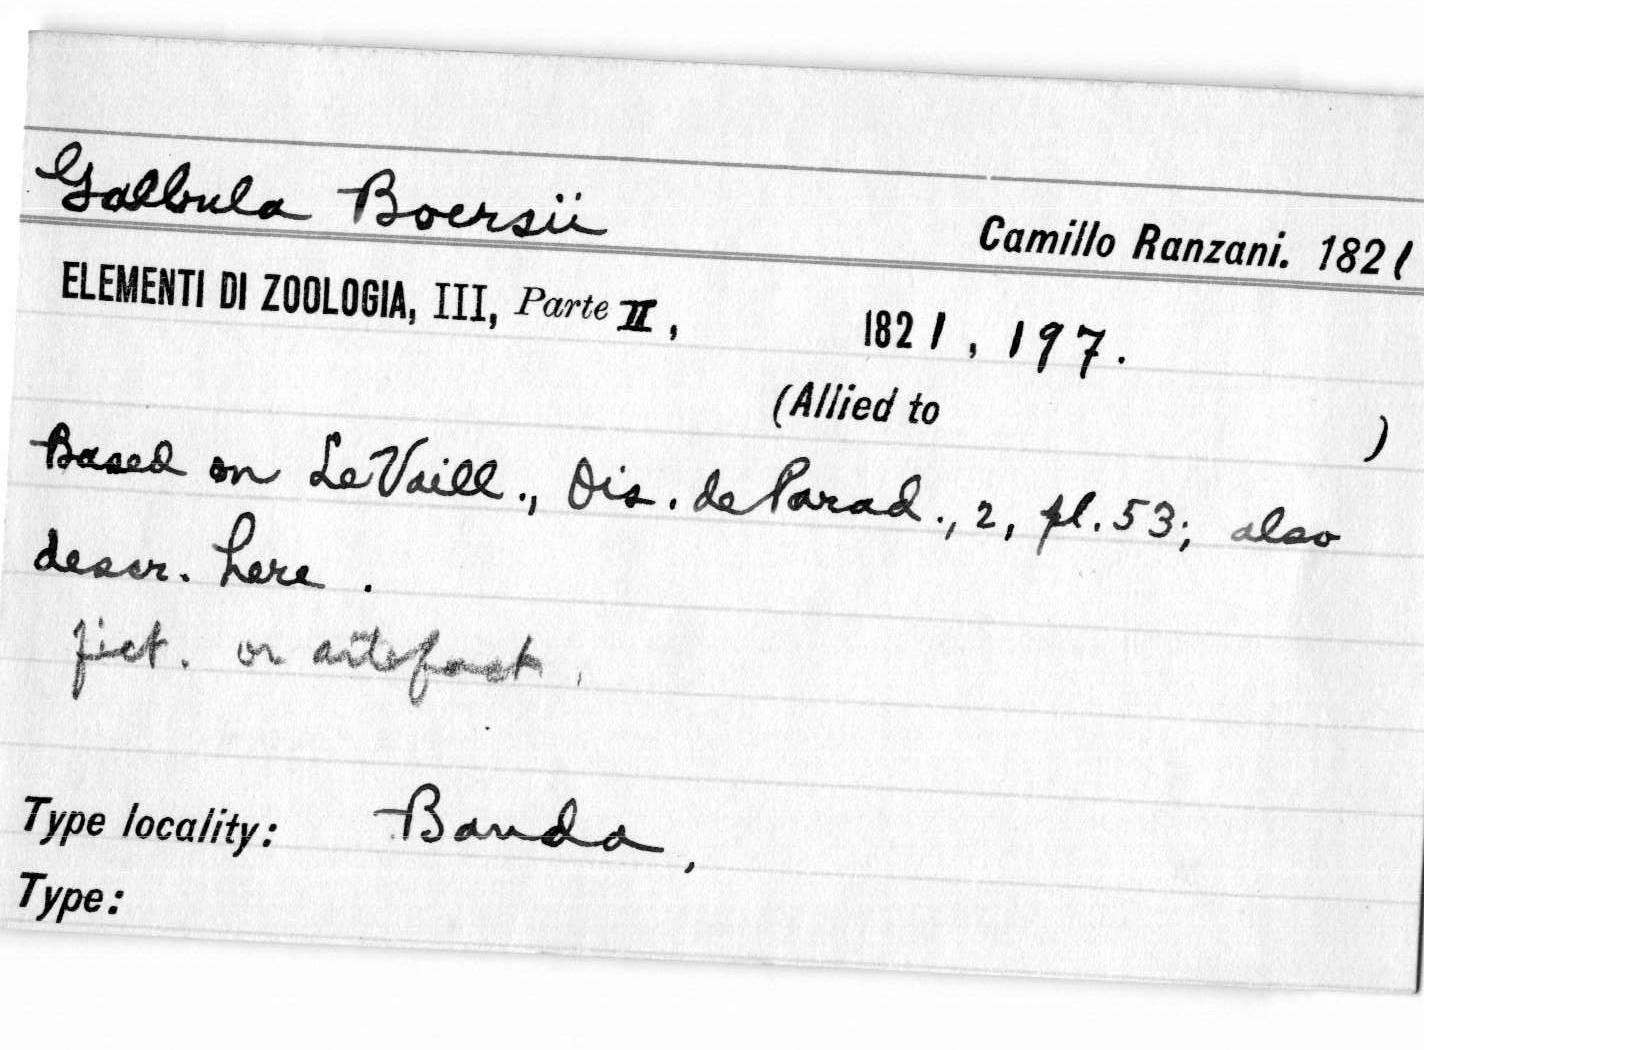 Galbula Boersii
Camillo Ranzani. 1821
ELEMENTI DI ZOOLOGIA, III, Parte II, 1821, 197.
(Allied to )
Based on LeVaill., Ois. de Parad., 2, pl. 53; also
descr. here.
fict. or artefact.
Type locality: Banda,
Type: